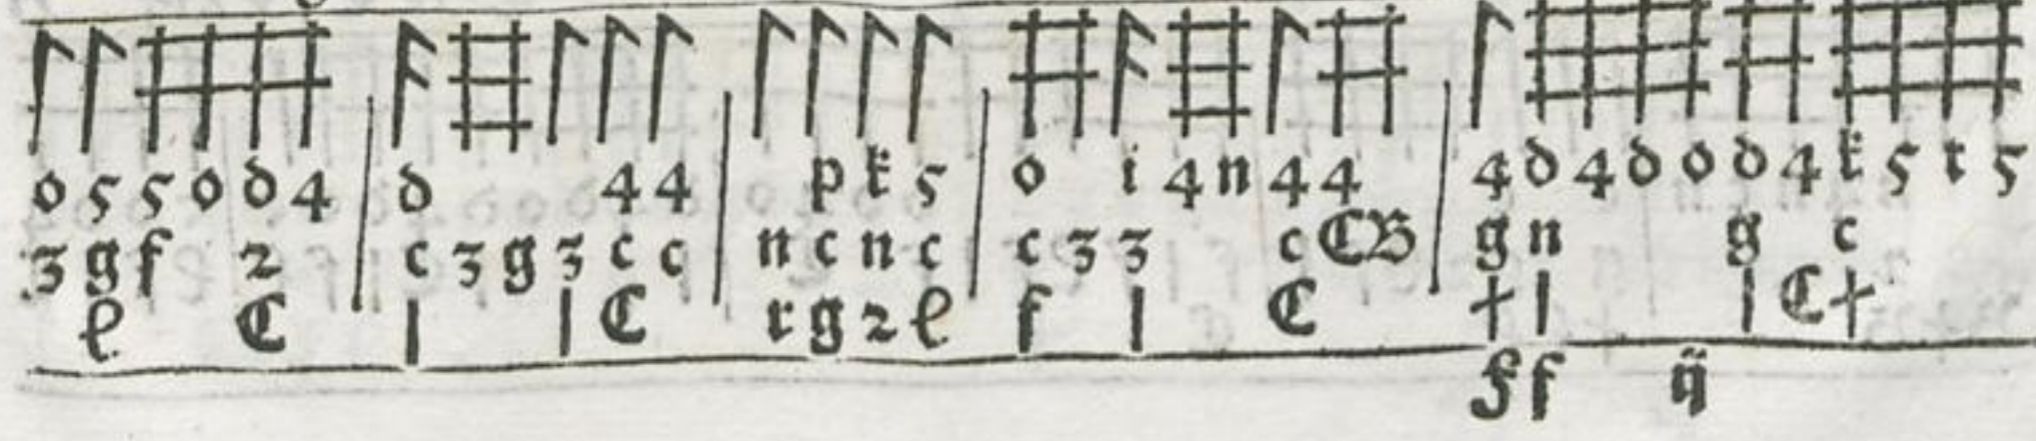 o 5 5 o d 4 | d 4 4 | p k 5 | o i 4 n 4 4 | 4 d 4 d o d 4 k̄ 5 t 5
3 g f 2 | c 3 g 3 c c | n c n c | c 3 3 c C B | g n g c
e C | | | C | r g 2 e | f | C | + | | C +
f f